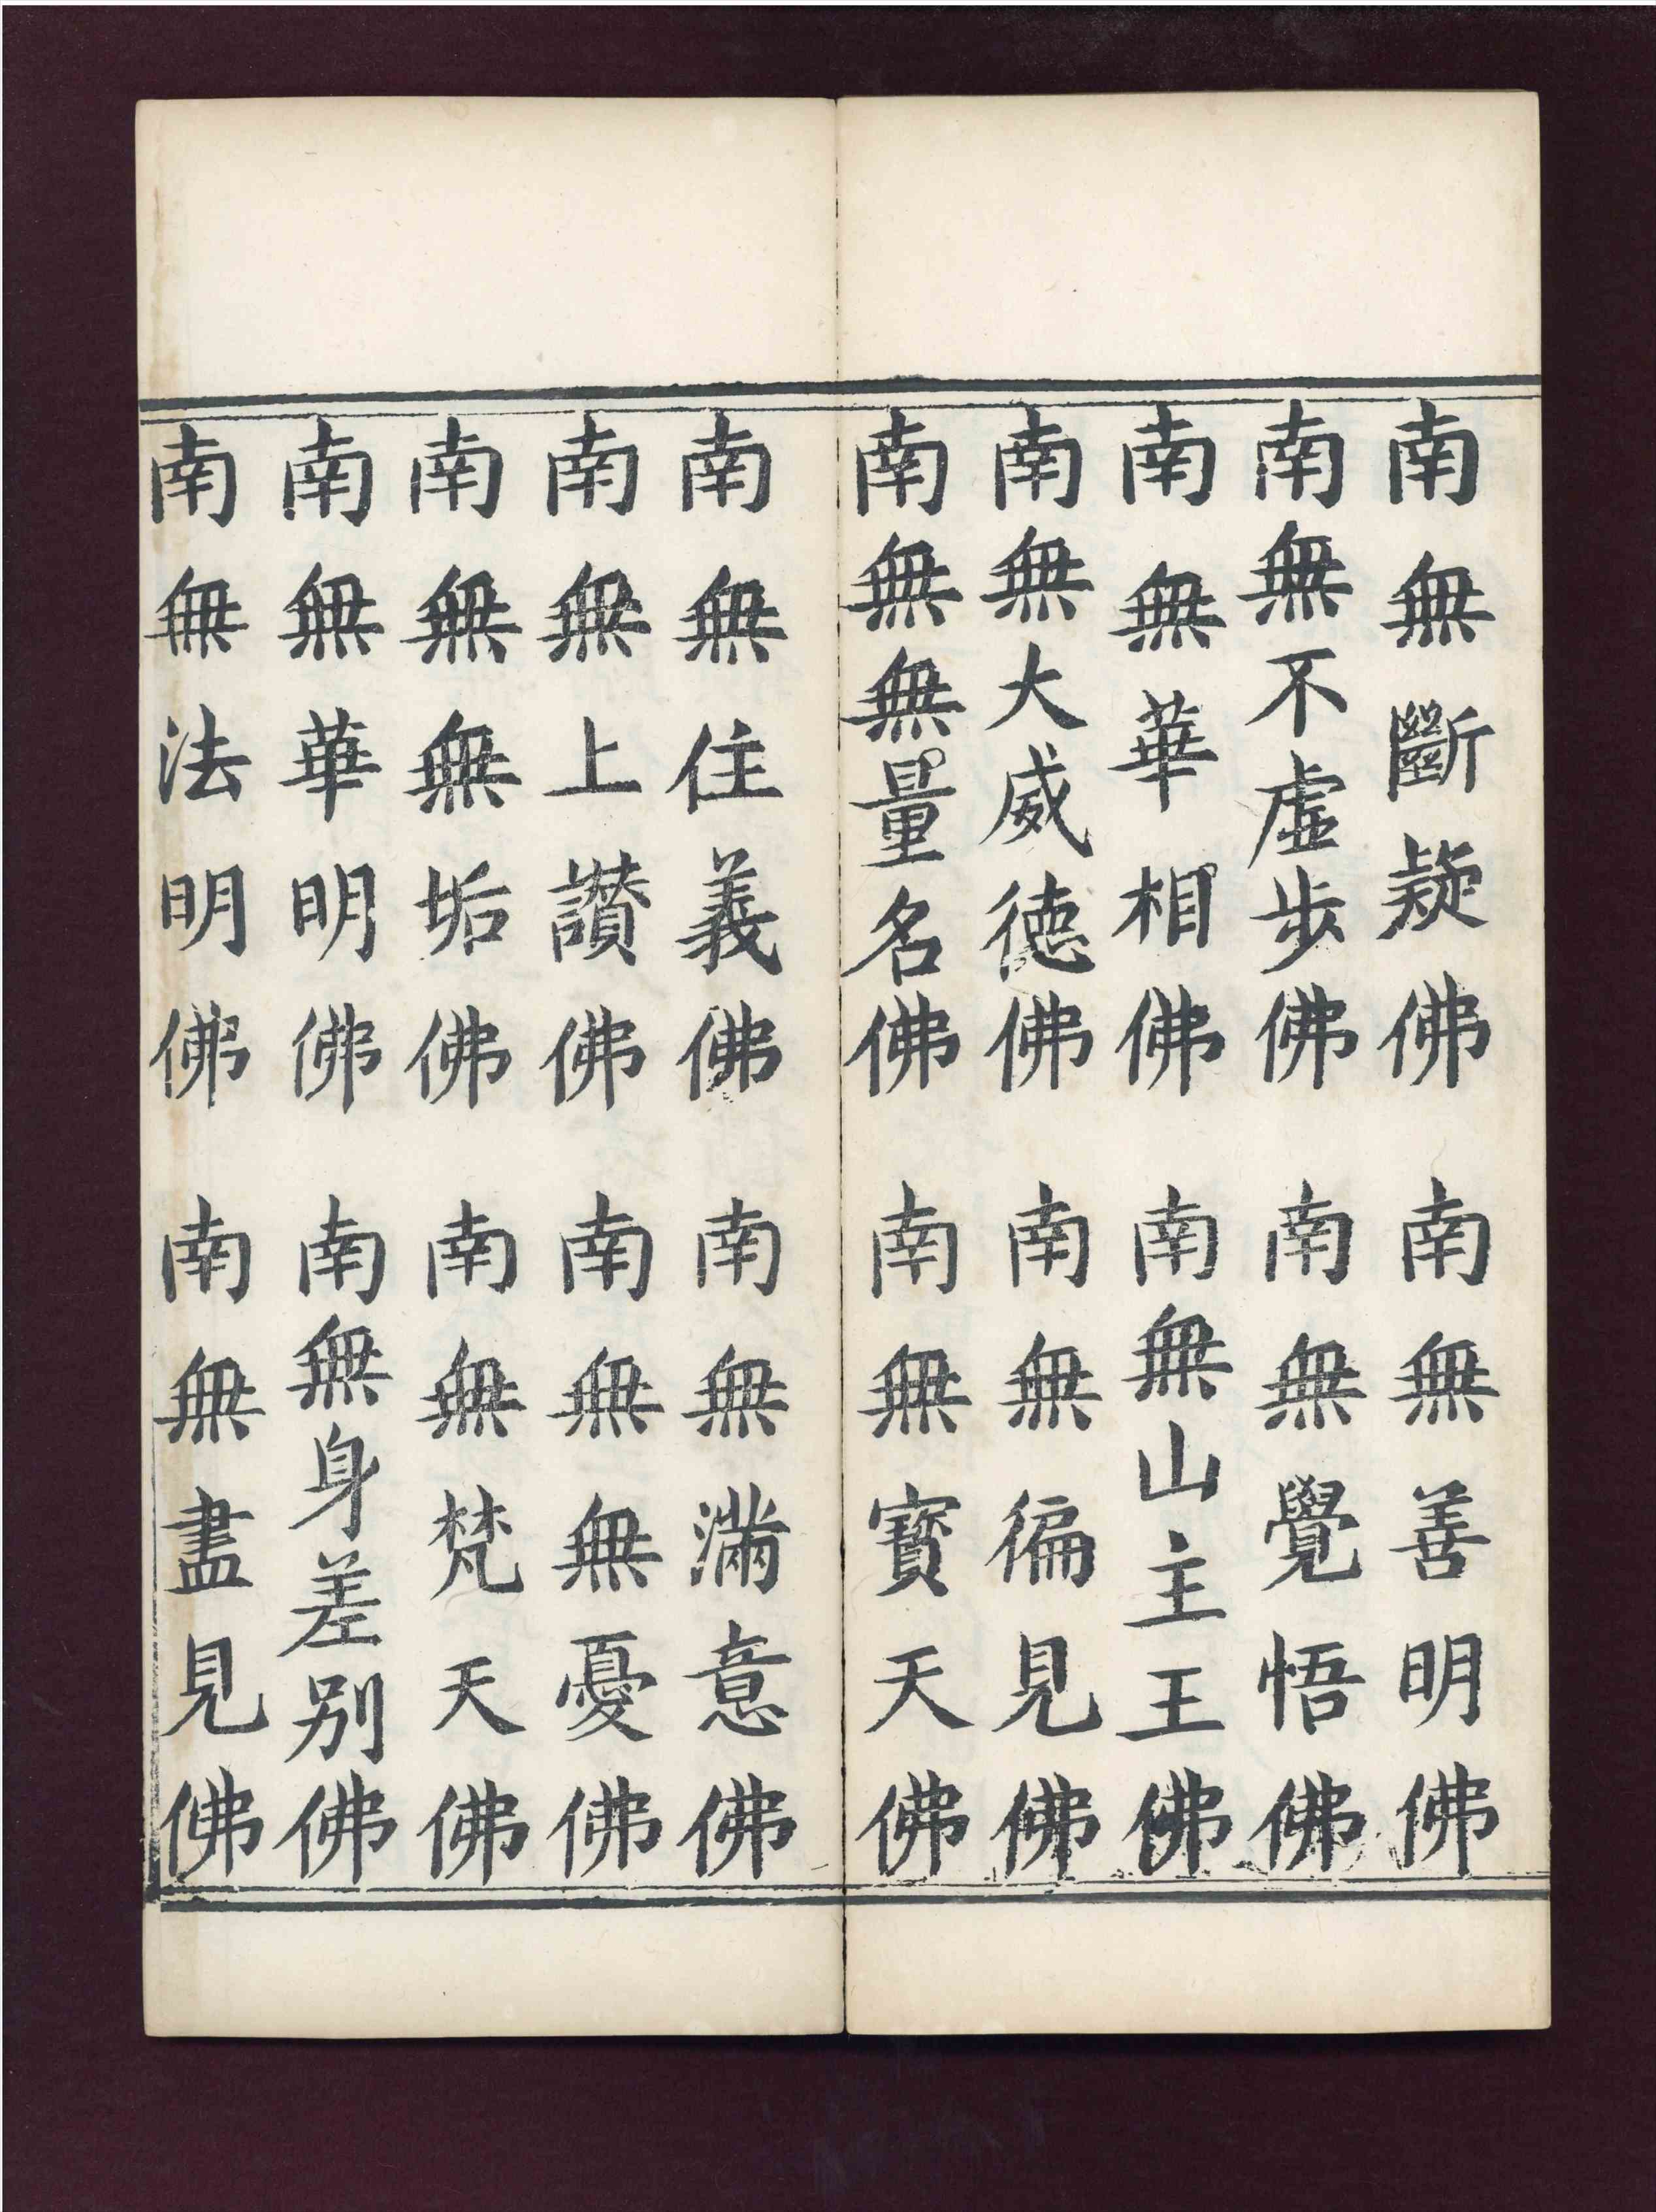 南無斷疑佛　南無善明佛
南無不虛步佛　南無覺悟佛
南無華相佛　南無山主王佛
南無大威德佛　南無徧見佛
南無無量名佛　南無寶天佛
南無住義佛　南無滿意佛
南無上讃佛　南無無憂佛
南無無垢佛　南無梵天佛
南無華明佛　南無身差別佛
南無法明佛　南無盡見佛